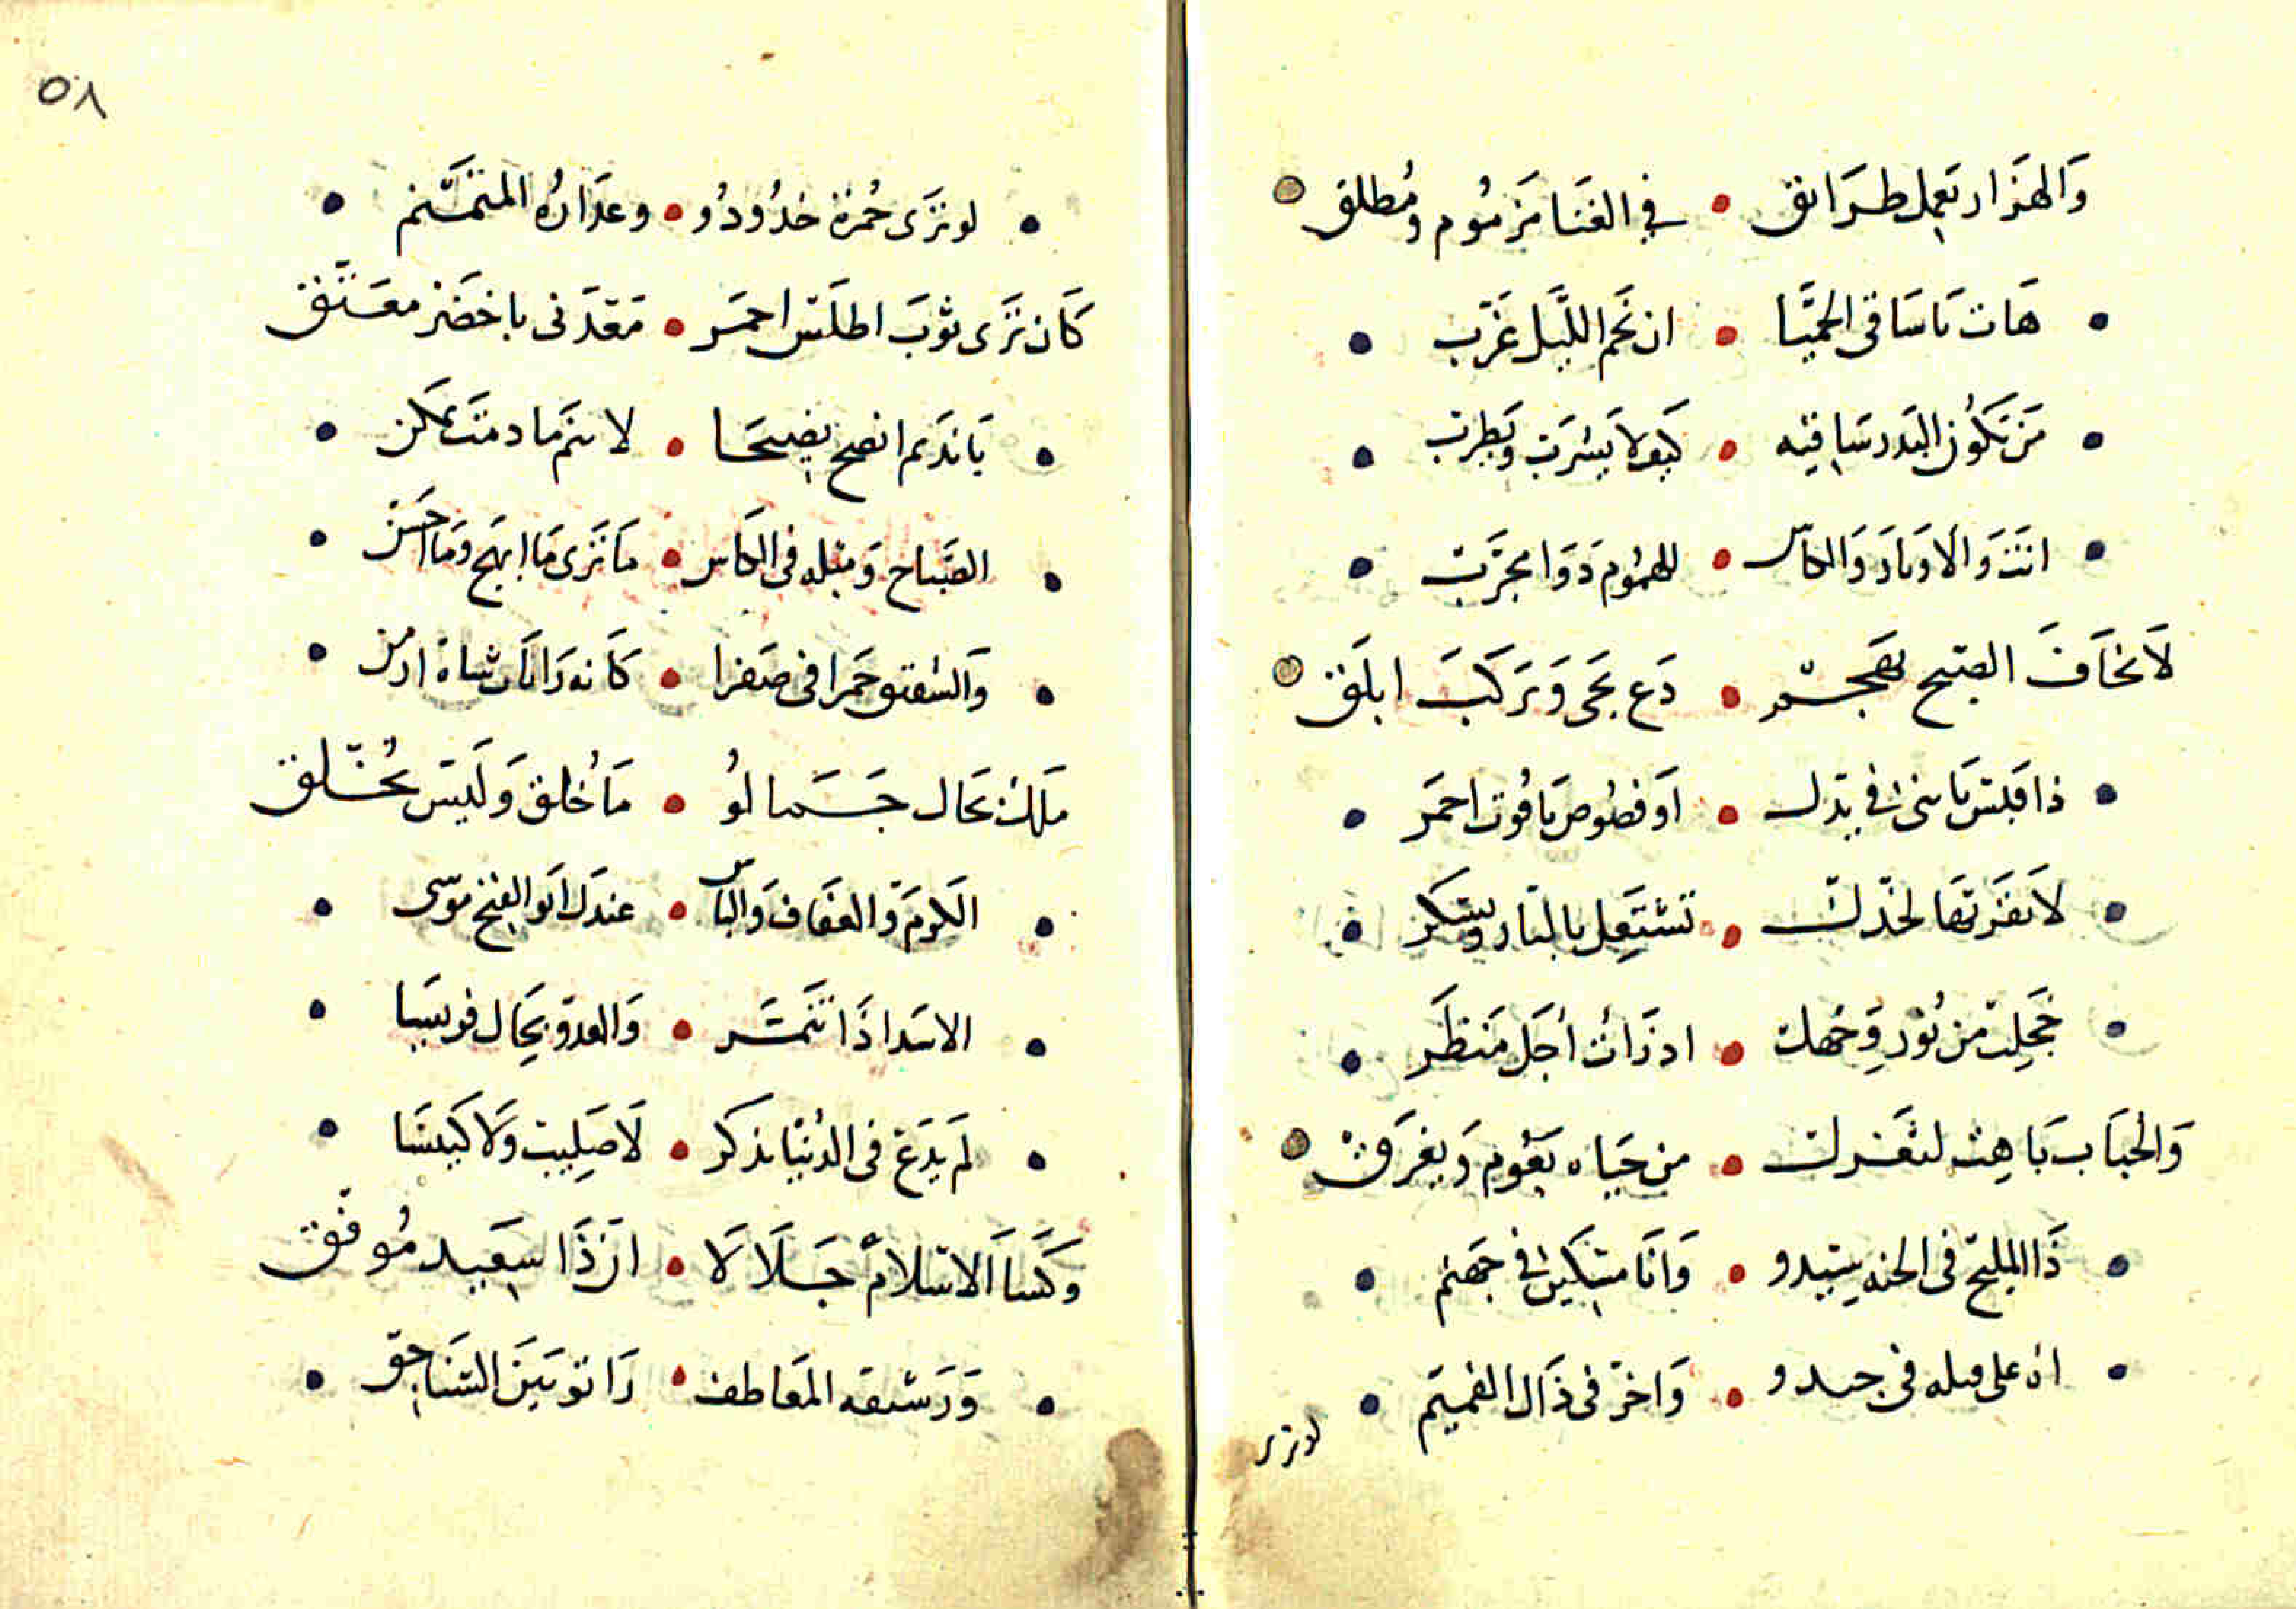 وَالهَزَار يَعمِل طَرَايق • في الغنَا مَزمُوم ومُطلق
• هَات يَا سَاقى الحمَيَّا • ان نَجم اللَّيل غَرَّب •
• مَن يَكُون البَدر سَاقيه • كيفَ لا يَشرَب ويَطرب •
• انتَ وَالاوتَار وَالكاس • للهمُوم دَوَا مجرّب •
لَا تخَاف الصّبح يهجم • دَع يجى وَيَركَب ابلَق
• ذا قبَس يَا فى يدّك • اَو فصُوص يَاقُوت احمَر •
• لَا تقَربهَا لخدّك • تشتَعِل بالنار ويسكر •
• خَجِلت من نُور وَجهك • اذ رَات اجَل مَنظَر •
وَالحبَاب بَاهِت لثغَرك • من حيَاه يَعُوم وَيغرَق
• ذَا المليح فى الجنه يبدو • وَانَا مسكين في جهنم •
• اه على قبله فى جيدو • وَاخرى فى ذَاك الفميّم •
لو ترى
٥٨
• لو تَرَى حُمرَة خدُودُو • وعذَارُه المنمنم •
كَان تَرَى ثوبَ اطلَس احمَر • مَعدَنى باخضَر معتّق
• يَا نَديم انصح نصيحَا • لا تنَم ما دمتَ تمكن •
• الصَبَاح وَمثله فى الكاس • مَا تَرَى مَا ابهَج وَمَا احسَن •
• وَالشفق حَمرا فى صَفرا • كَانه رَايَات شاه ارمن •
ملك بحَال جَمَالو • مَا خُلق وَلَيس يُخلق
• الكَرم وَالعفَاف وَالباس • عندَك ابو الفتح موسى •
• الاسَد اذَا تنَمَّر • وَالعدوّ بحَال فريسَا •
• لَم يَدَع فى الدُنيَا يذكر • لَا صَلِيب وَلا كَنيسَا •
وَكسَا الاسلَام جَلَالَا • ان ذَا سَعِيد مُوفَّق
• وَرَشيقه المَعَاطف • رَاتو بَين السنَاجق •